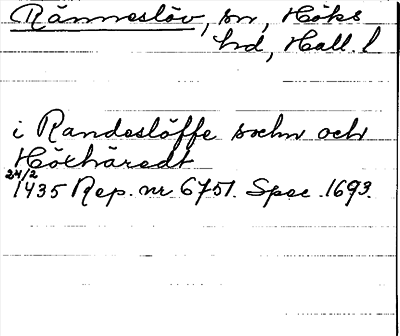 Ränneslöv, sn, Höks
hd, Hall. l
i Randeslöffe sochn och
Höxhäredt
24/2
1435 Rep. nr 6751. Spec. 1693.